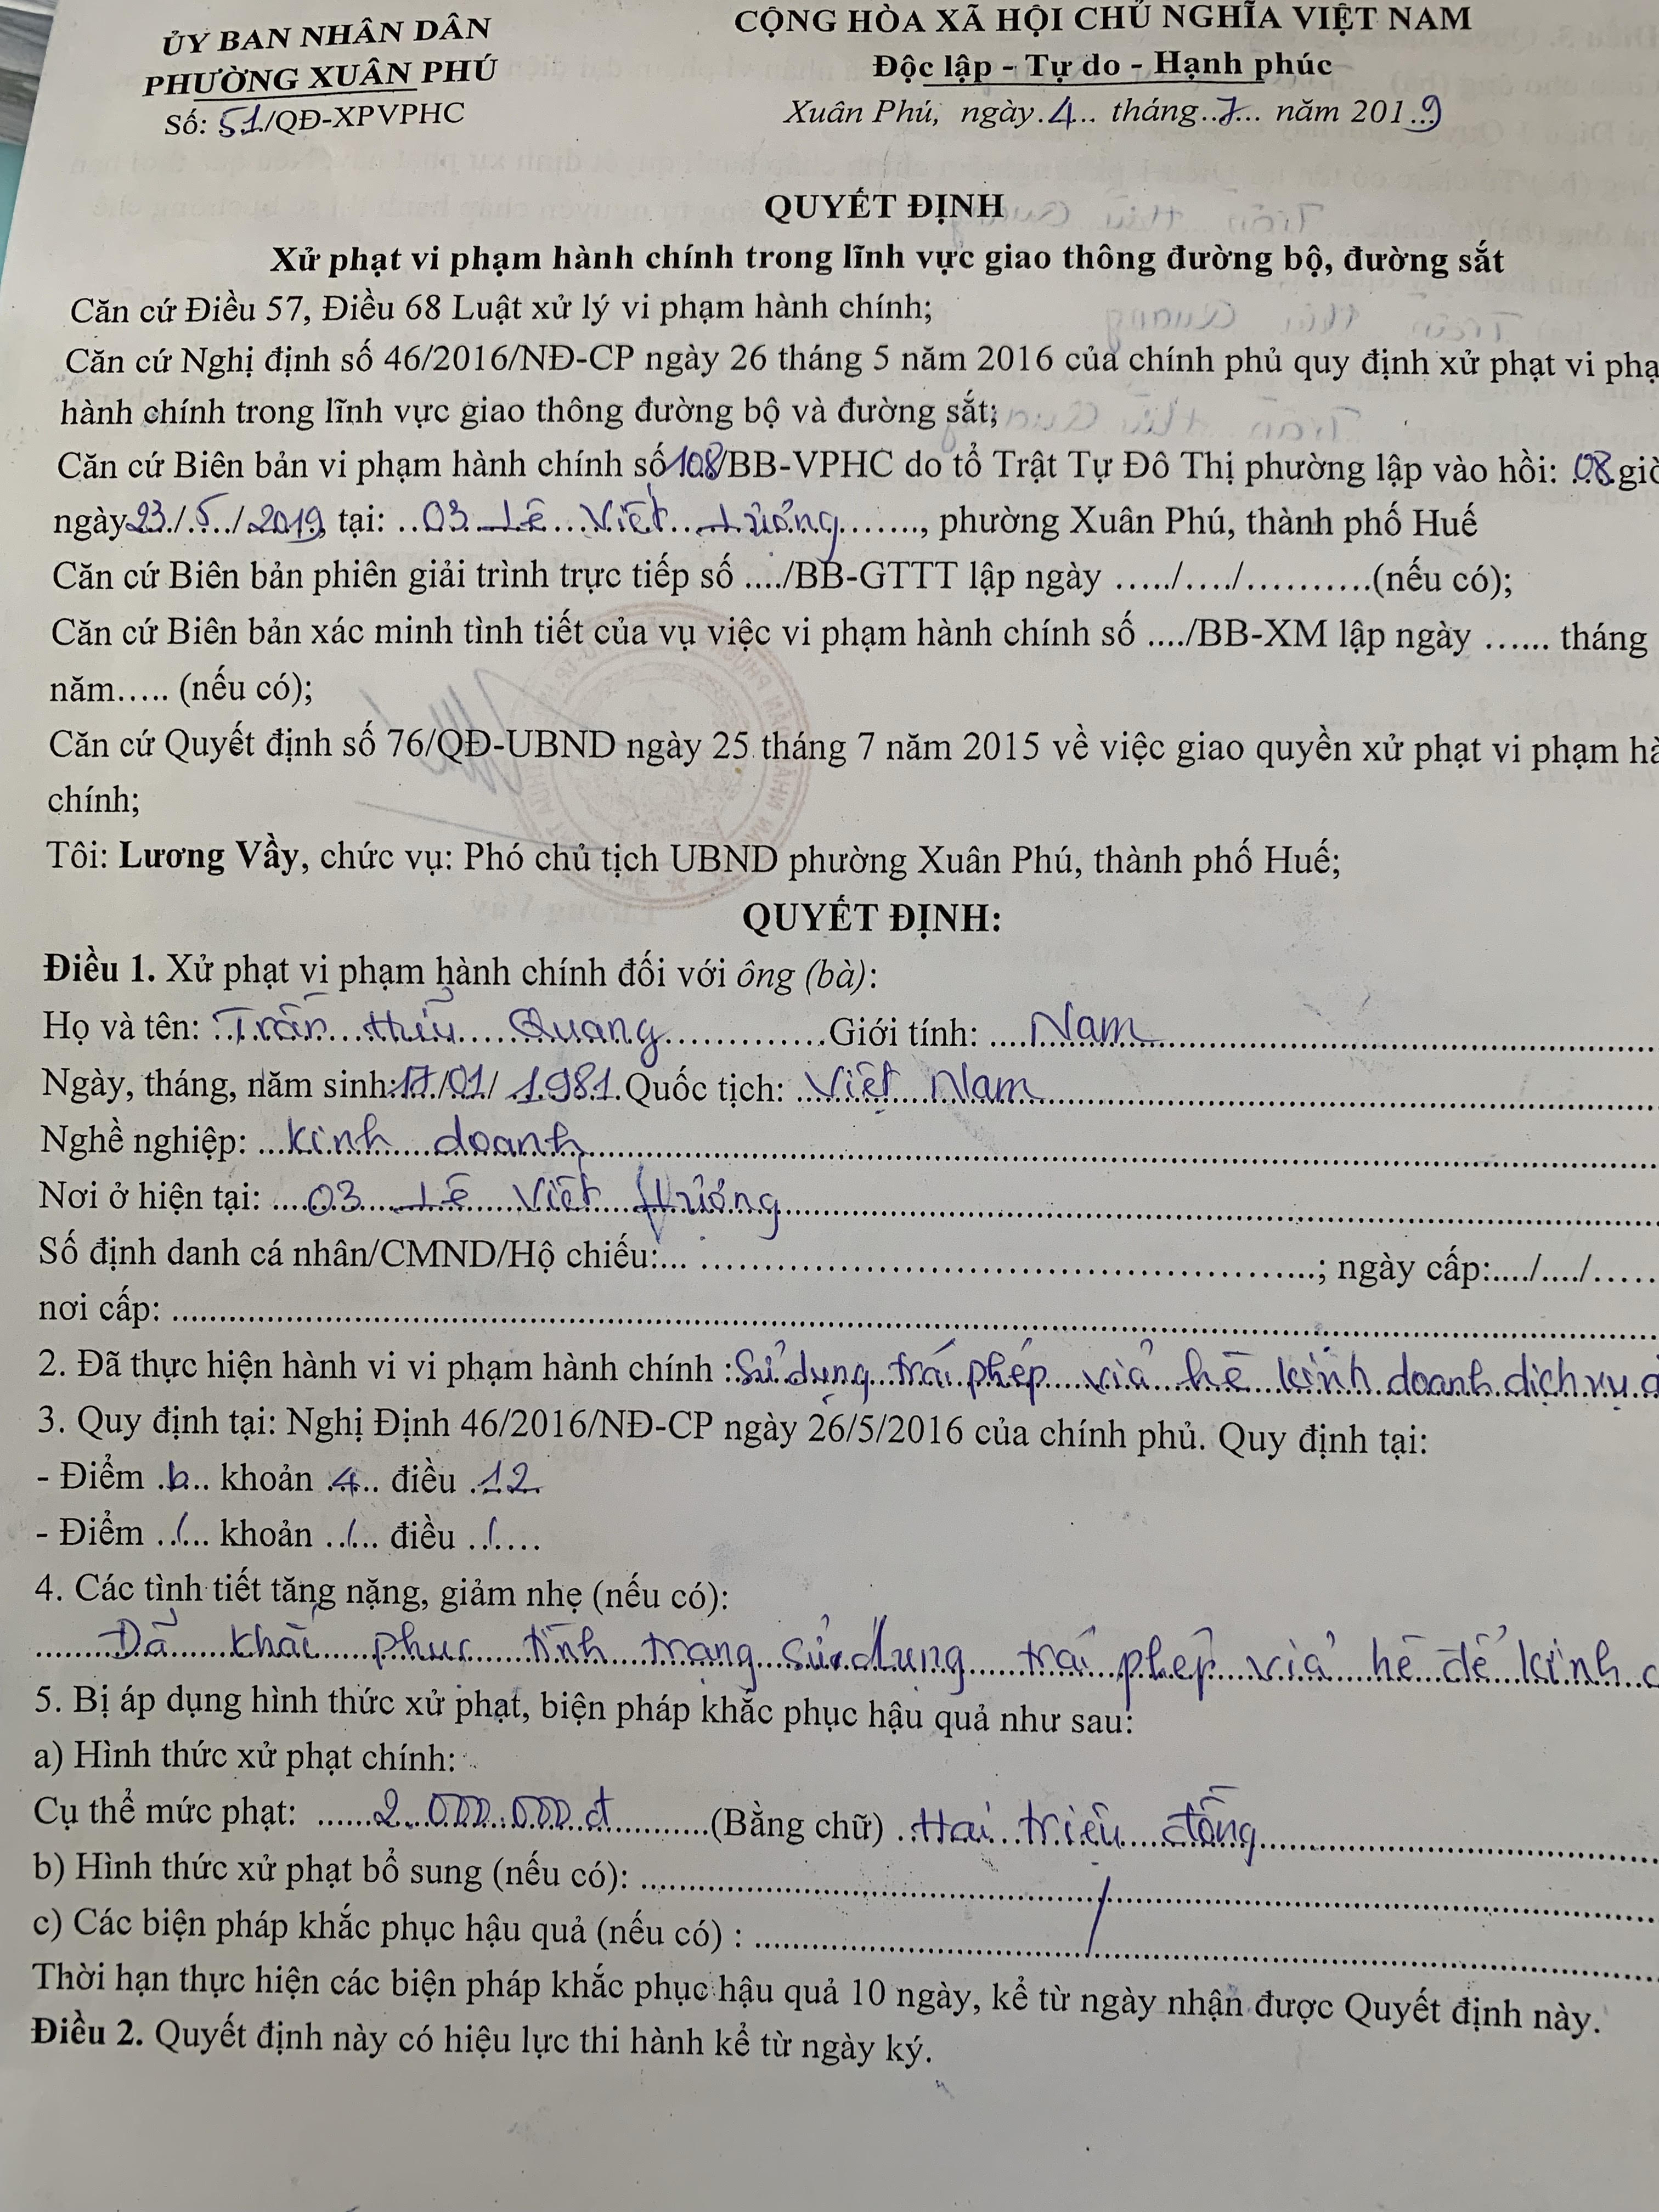 ỦY BAN NHÂN DÂN
PHƯỜNG XUÂN PHÚ
Số: 51/QĐ-XPVPHC
CỘNG HÒA XÃ HỘI CHỦ NGHĨA VIỆT NAM
Độc lập - Tự do - Hạnh phúc
Xuân Phú, ngày.4... tháng..7... năm 201.9
QUYẾT ĐỊNH
Xử phạt vi phạm hành chính trong lĩnh vực giao thông đường bộ, đường sắt
Căn cứ Điều 57, Điều 68 Luật xử lý vi phạm hành chính;
Căn cứ Nghị định số 46/2016/NĐ-CP ngày 26 tháng 5 năm 2016 của chính phủ quy định xử phạt vi phạ
hành chính trong lĩnh vực giao thông đường bộ và đường sắt;
Căn cứ Biên bản vi phạm hành chính số 108/BB-VPHC do tổ Trật Tự Đô Thị phường lập vào hồi: 08 giờ
ngày 23/5/2019, tại: ..03 Lê Viết Lượng......., phường Xuân Phú, thành phố Huế
Căn cứ Biên bản phiên giải trình trực tiếp số ..../BB-GTTT lập ngày ...../..../..........(nếu có);
Căn cứ Biên bản xác minh tình tiết của vụ việc vi phạm hành chính số ..../BB-XM lập ngày ...... tháng
năm..... (nếu có);
Căn cứ Quyết định số 76/QĐ-UBND ngày 25 tháng 7 năm 2015 về việc giao quyền xử phạt vi phạm hà
chính;
Tôi: Lương Vầy, chức vụ: Phó chủ tịch UBND phường Xuân Phú, thành phố Huế;
QUYẾT ĐỊNH:
Điều 1. Xử phạt vi phạm hành chính đối với ông (bà):
Họ và tên: Trần Hữu Quang.............Giới tính: ....Nam
Ngày, tháng, năm sinh: 17/01/1981. Quốc tịch: Việt Nam
Nghề nghiệp: ...kinh doanh
Nơi ở hiện tại: ....03 Lê Viết Lượng
Số định danh cá nhân/CMND/Hộ chiếu:... ......; ngày cấp:..../..../.....
nơi cấp: ......
2. Đã thực hiện hành vi vi phạm hành chính : Sử dụng trái phép vỉa hè kinh doanh dịch vụ
3. Quy định tại: Nghị Định 46/2016/NĐ-CP ngày 26/5/2016 của chính phủ. Quy định tại:
- Điểm .b.. khoản .4.. điều .12.
- Điểm ../... khoản ../... điều ../....
4. Các tình tiết tăng nặng, giảm nhẹ (nếu có):
Đã khắc phục tình trạng sử dụng trái phép vỉa hè để kinh
5. Bị áp dụng hình thức xử phạt, biện pháp khắc phục hậu quả như sau:
a) Hình thức xử phạt chính:
Cụ thể mức phạt: ......2.000.000đ..........(Bằng chữ) ..Hai triệu đồng
b) Hình thức xử phạt bổ sung (nếu có): ......
c) Các biện pháp khắc phục hậu quả (nếu có) : ...../.....
Thời hạn thực hiện các biện pháp khắc phục hậu quả 10 ngày, kể từ ngày nhận được Quyết định này.
Điều 2. Quyết định này có hiệu lực thi hành kể từ ngày ký.